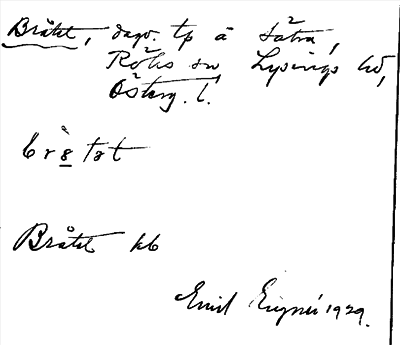 Bråtet, dagv. tp å Sätra,
Röks sn, Lysings hd,
Österg. l.
bròtət
Bråtet kb
Emil 1929.